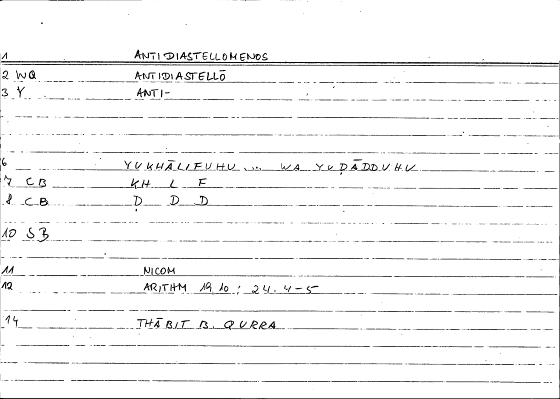 1 ANTIDIASTELLOMENOS
2 WQ ANTIDIASTELLŌ
3 Y ANTI-
6 YUKHĀLIFUHU ... WA YUḌĀDDUHU
7 CB KH L F
8 CB Ḍ D D
10 SB
11 NICOM
12 ARITHM 19.10 ; 24.4-5
14 THĀBIT B. QURRA